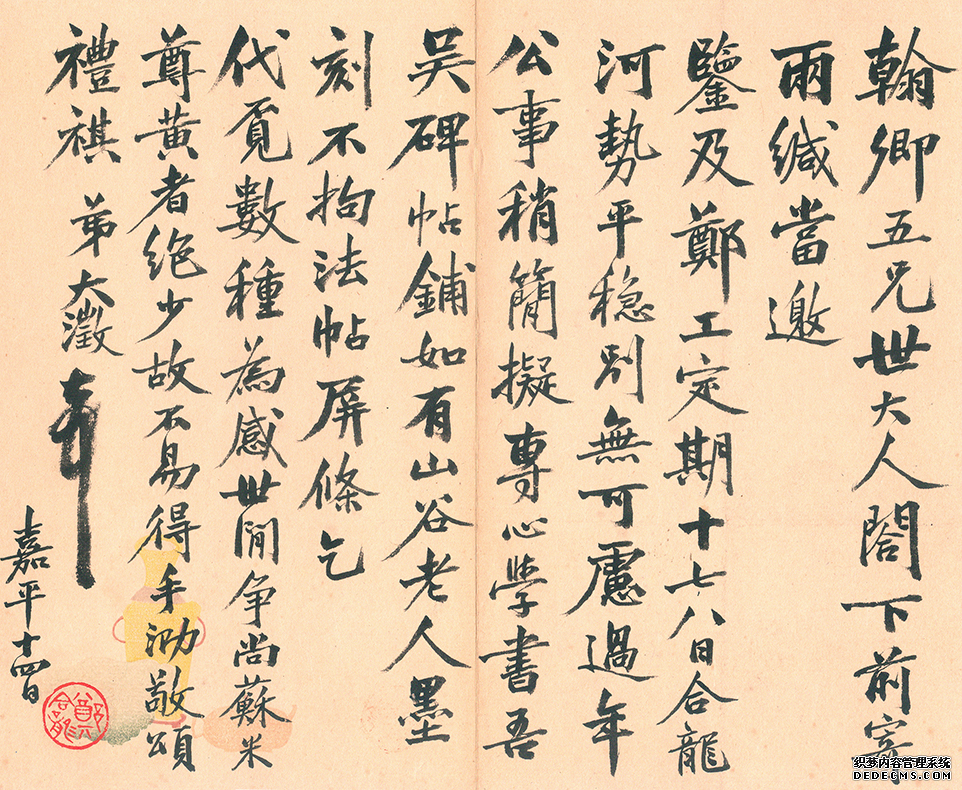 翰卿五兄世大人閣下前寄
兩緘當邀
鑒及鄭工定期十七八日合龍
河勢平穩別無可慮過年
公事稍簡擬專心學書吾
吳碑帖鋪如有山谷老人墨
刻不拘法帖屏條乞
代覓數種為感世閒爭尚蘇米
尊黃者絕少故不易得手泐敬頌
禮祺 弟大澂
嘉平十四日
织梦内容管理系统
DEDECMS.COM